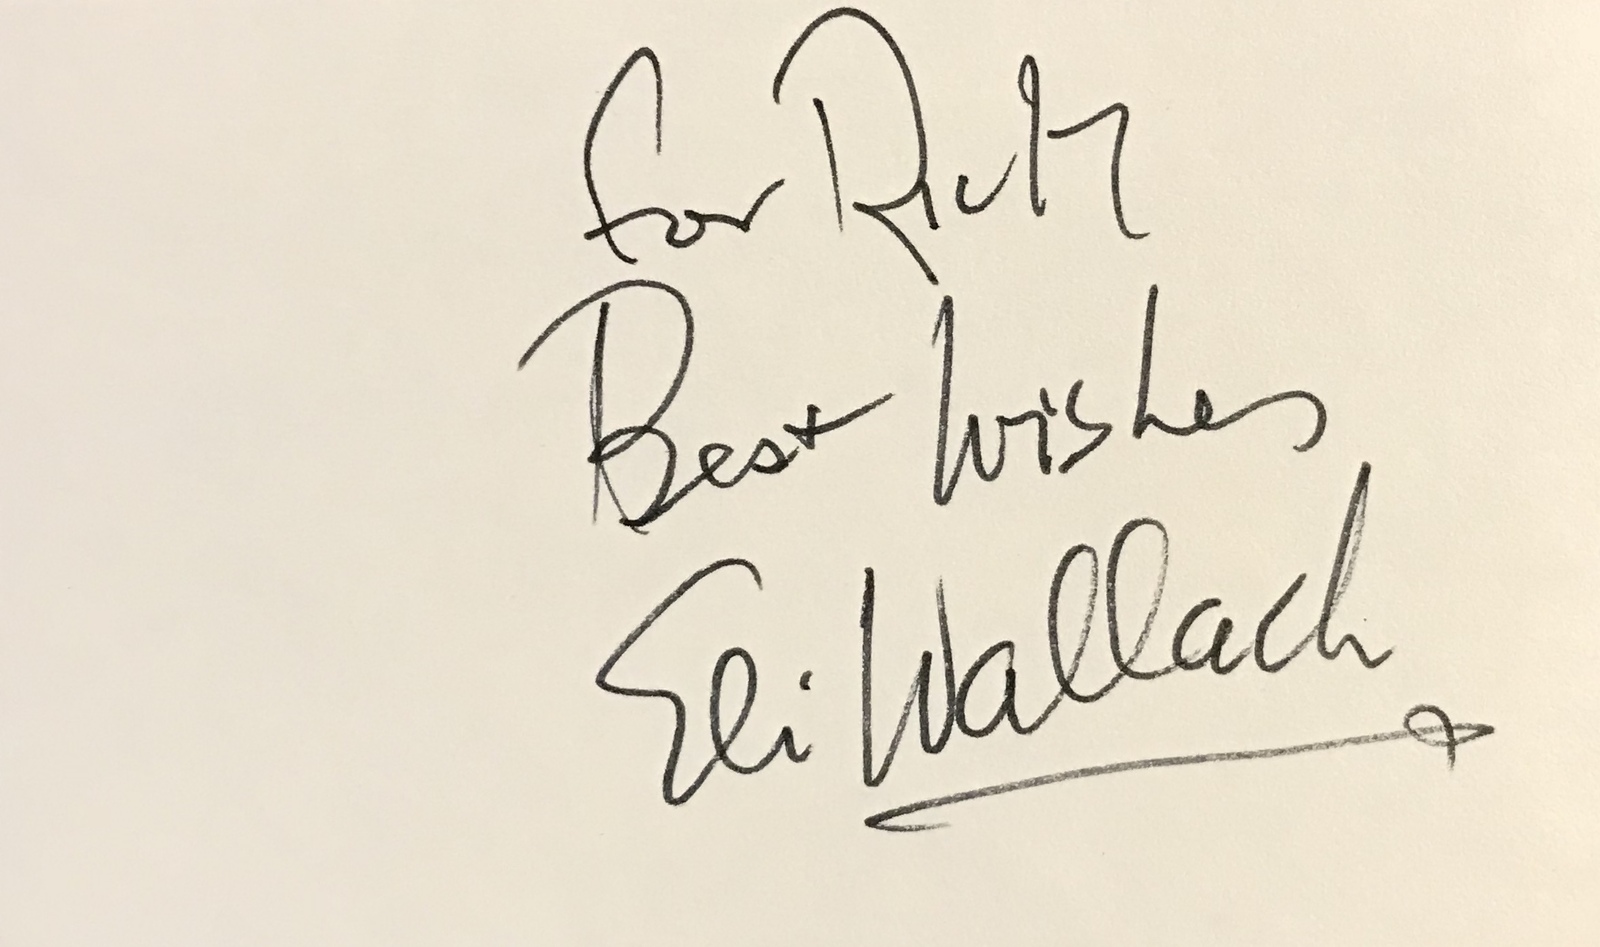 For Ruth
Best Wishes
Eli Wallach